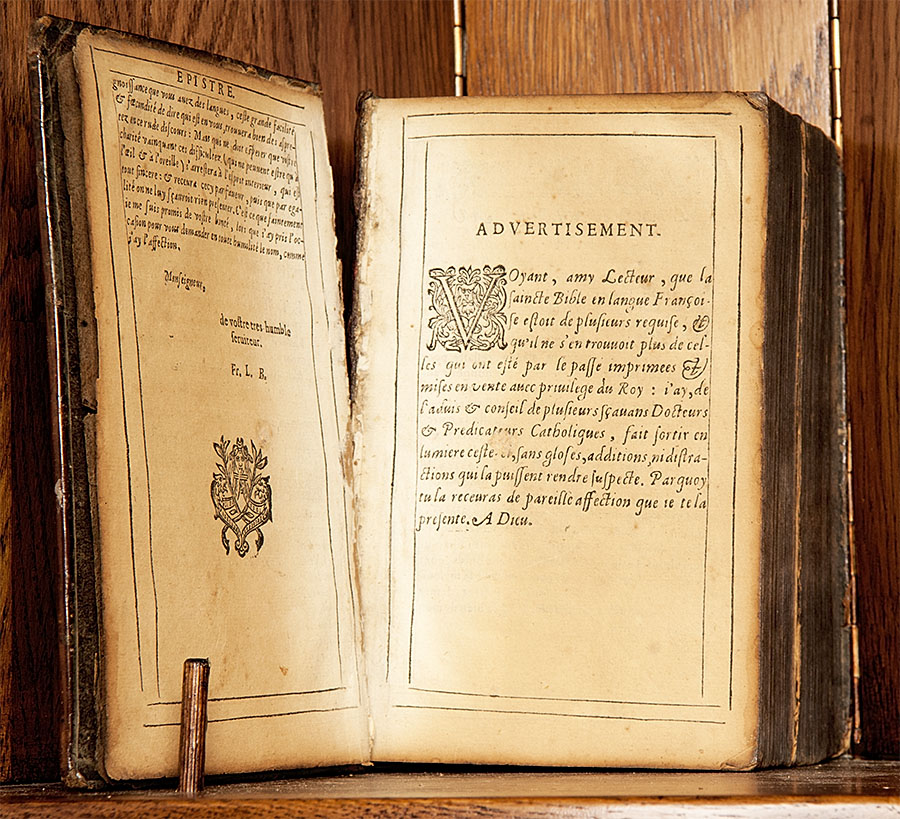 EPISTRE.
gnoissance que vous avez des langues, ceste grande facilité
& fœcondité de dire qui est en vous, trouvera bien des aspre-
tez en ce rude discours: Mais qui ne doit esperer que vostre
charité vainquant ces difficultez (qui ne peuvent estre qu'à
l'œil & à l'oreille) s'arrestera à l'esprit interieur, qui est
tout sincere: & recevra cecy par faveur, puis que par ega-
lité on ne luy sçauroit rien presenter. C'est ce que sainctement
ie me suis promis de vostre bonté, lors que i'ay pris l'oc-
casion pour vous demander en toute humilité le nom, comme
i'ay l'affection,
Monseigneur,
de vostre tres-humble
serviteur.
Fr. L. B.
ADVERTISEMENT.
VOyant, amy Lecteur, que la
saincte Bible en langue Françoi-
se estoit de plusieurs requise, &
qu'il ne s'en trouvoit plus de cel-
les qui ont esté par le passe imprimees &
mises en vente avec privilege du Roy: i'ay, de
l'advis & conseil de plusieurs sçavans Docteurs
& Predicateurs Catholiques, fait sortir en
lumiere ceste-cy, sans gloses, additions, ni distra-
ctions qui la puissent rendre suspecte. Parquoy
tu la receuras de pareille affection que ie te la
presente. A Dieu.